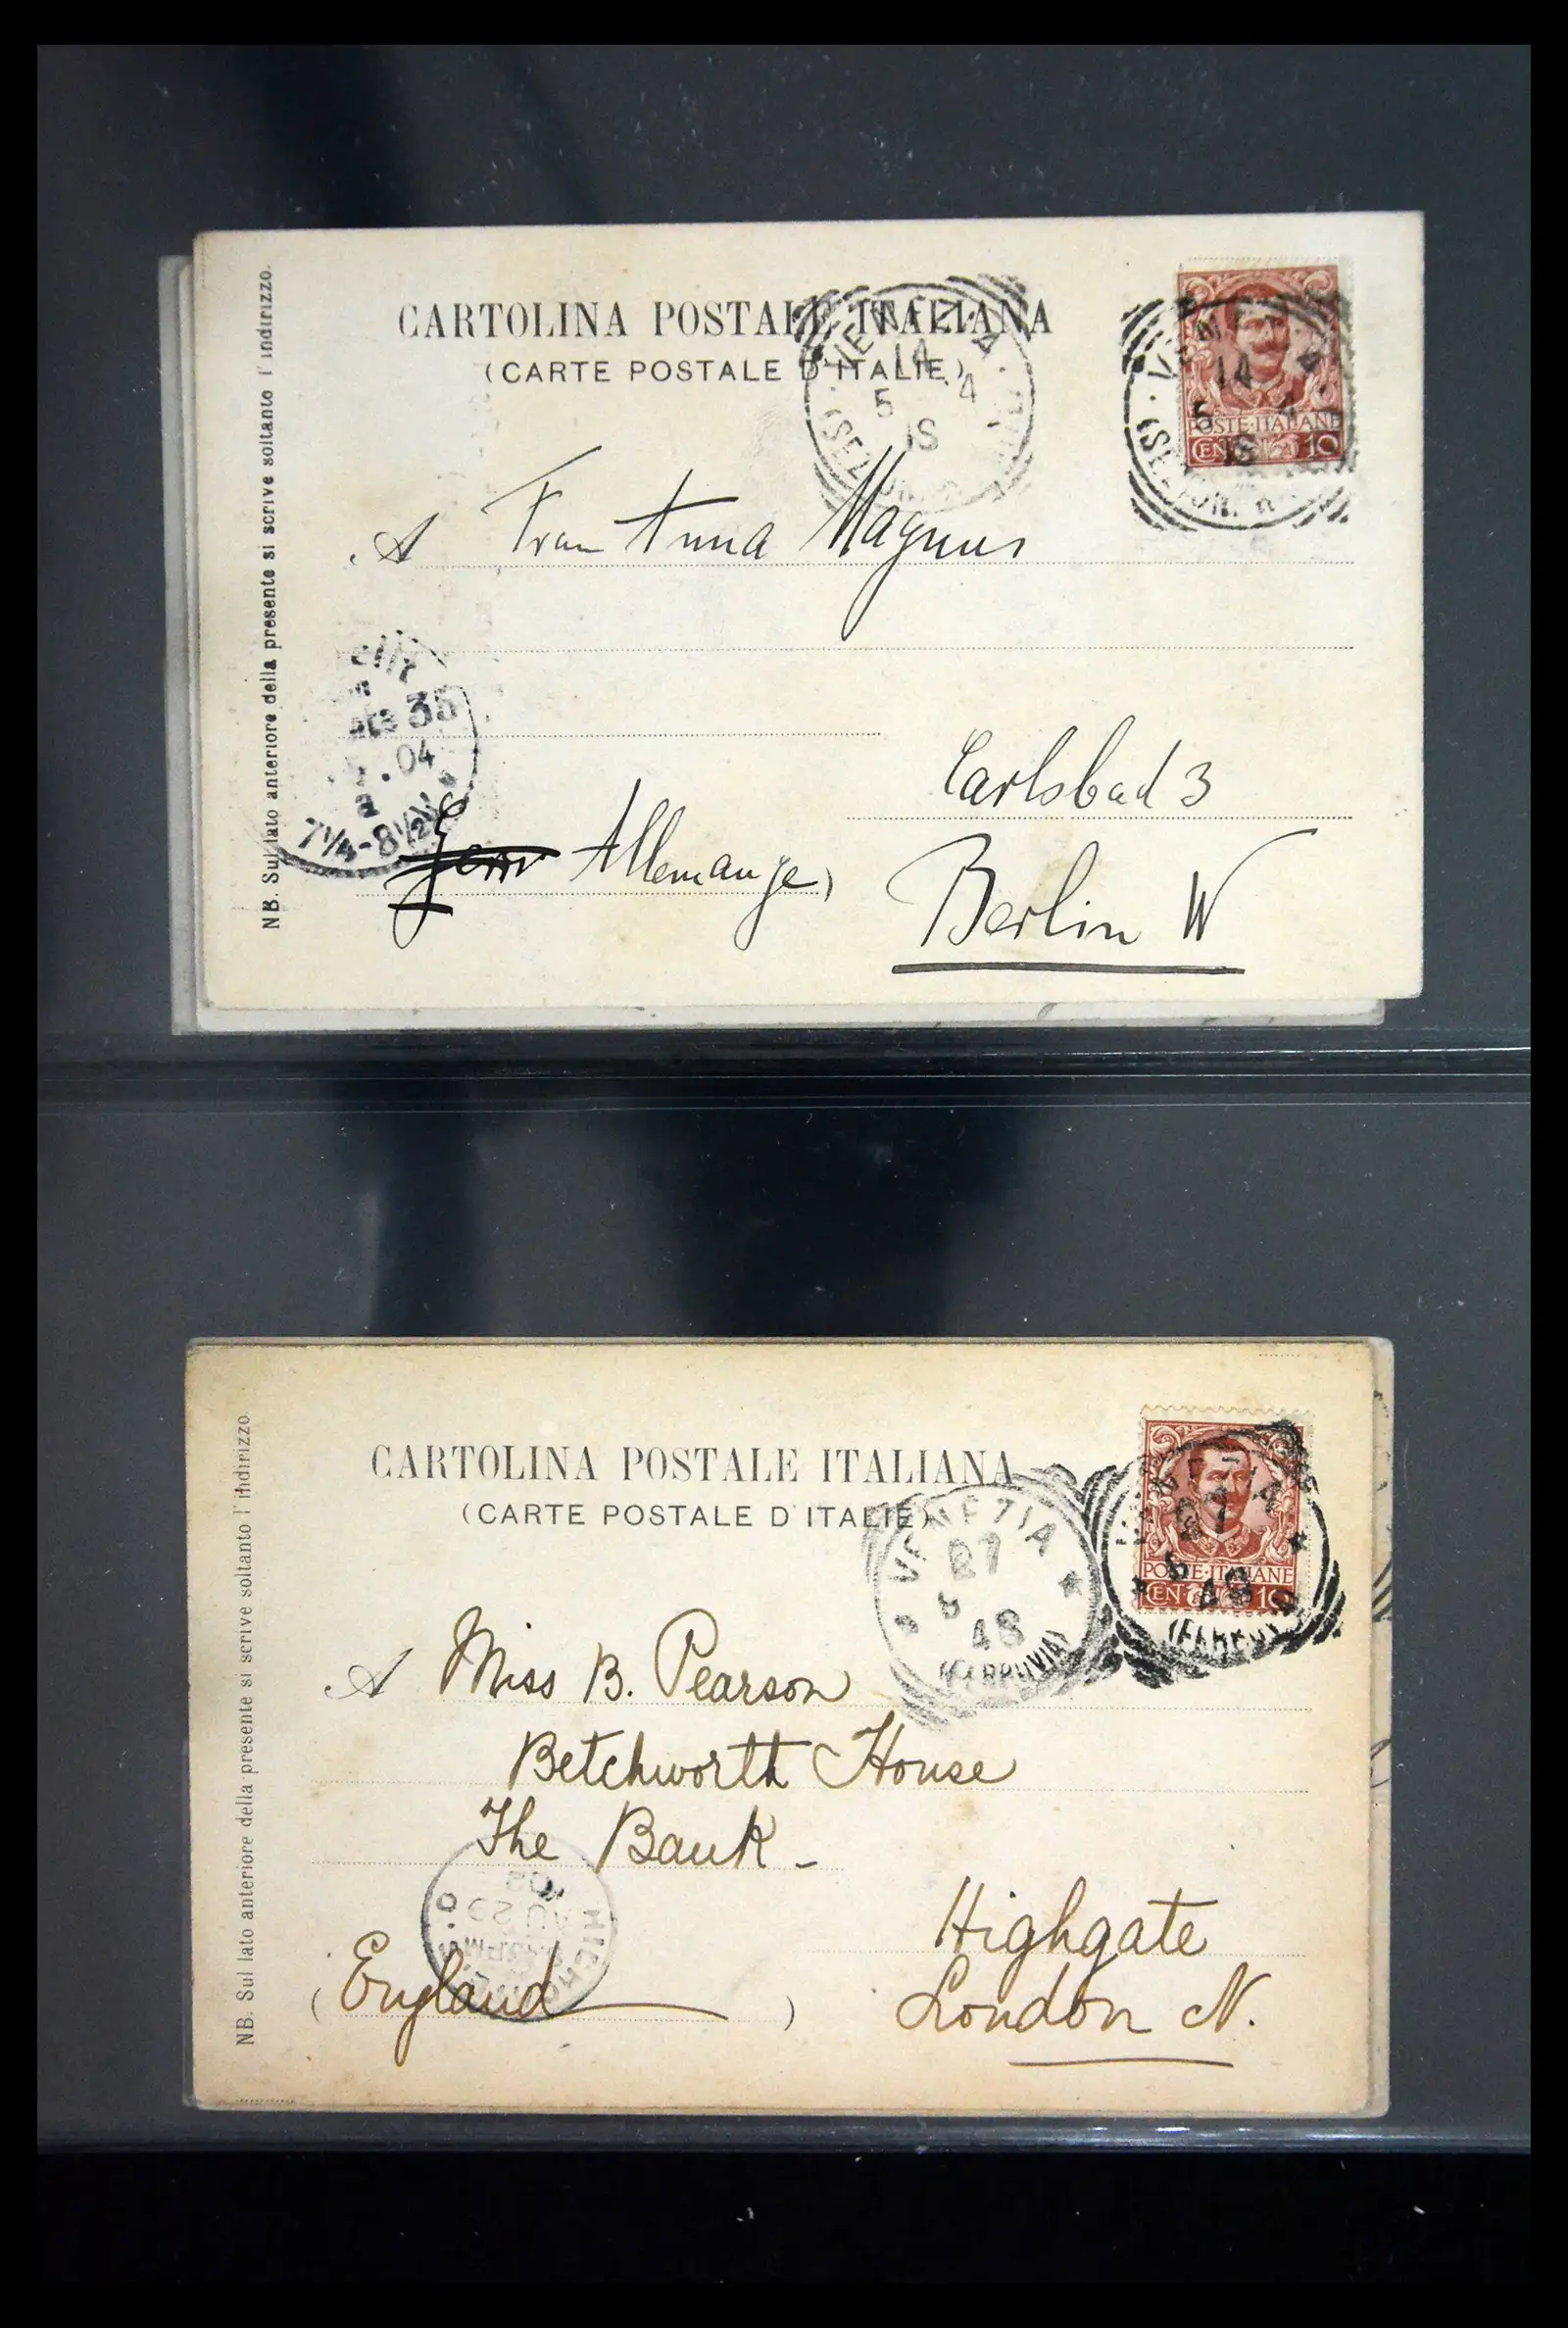 CARTOLINA POSTALE ITALIANA
(CARTE POSTALE D'ITALIE)
VENEZIA
14
5 4
S
VENEZIA
14
5 4
POSTE·ITALIANE
CEN 10
A Frau Anna Magnus
35
.04
7¼-8½V
Carlsbad 3
Allemange
Berlin W
NB. Sul lato anteriore della presente si scrive soltanto l'indirizzo.
CARTOLINA POSTALE ITALIANA
(CARTE POSTALE D'ITALIE)
VENEZIA
27
8
(FERROVIA)
VENEZIA
27
8
(FERROVIA)
POSTE·ITALIANE
CEN 10
A Miss B. Pearson
Betchworth House
The Bank -
Highgate
(England)
London N.
HIGHGATE
AU 29
02
NB. Sul lato anteriore della presente si scrive soltanto l'indirizzo